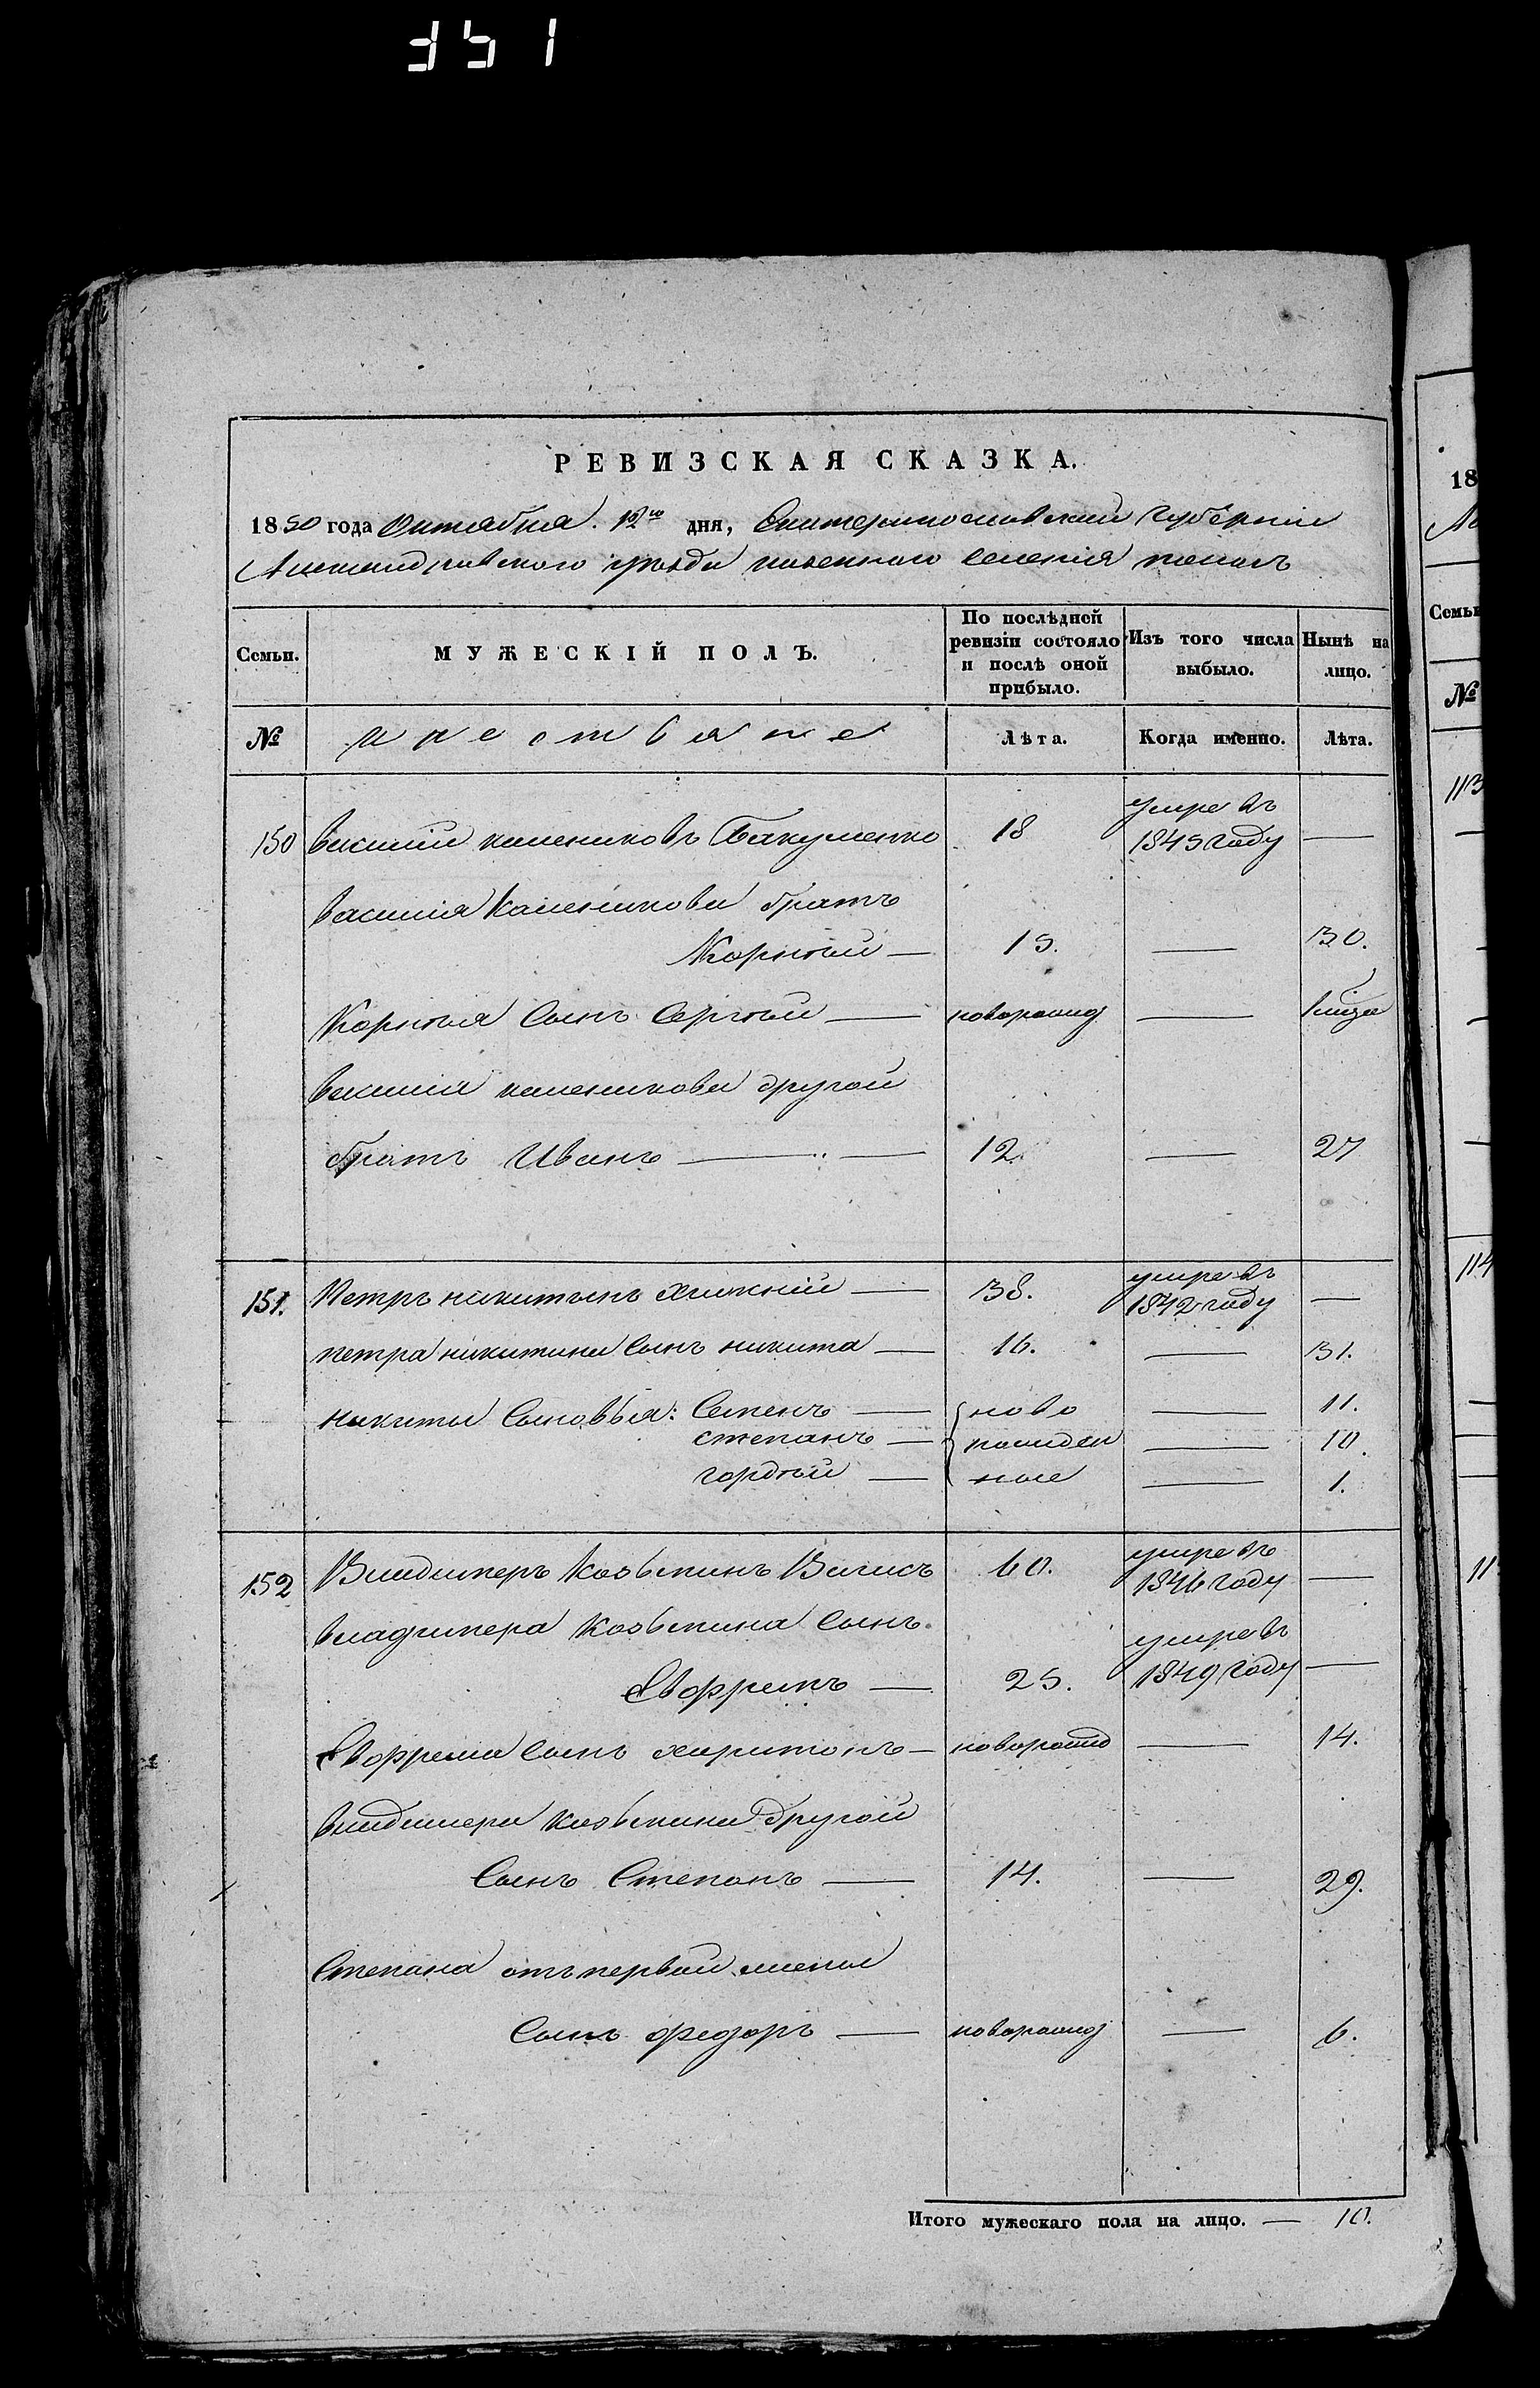 351
РЕВИЗСКАЯ СКАЗКА.
1850 года Октября 18го дня, Екатеринославской Губерніи
Александровского уѣзда казенного селенія
Семьи. МУЖЕСКІЙ ПОЛЪ. По послѣдней ревизіи состояло и послѣ оной прибыло. Изъ того числа выбыло. Нынѣ на лицо.
№ крестьяне Лѣта. Когда именно. Лѣта.
умре въ
150 Василій калениковъ Бакуменко 18 1845 году —
Василія Каленикова братъ
Корнѣй — 15. — 30.
Корнѣя Сынъ Сергѣй — новорожд — 
Василія каленикова другой
братъ Иванъ — 12. — 27
умре въ
151. Петръ никитинъ — 38. 1842 году —
петра никитина Сынъ никита — 16. — 31.
никиты Сыновья: Семенъ — ново — 11.
степанъ — рожден — 10.
гордѣй — ные — 1.
умре въ
152 Владимеръ Козьминъ 60. 1846 году —
владимера Козьмина Сынъ
умре въ
Евфремъ — 25. 1849 году —
Евфрема Сынъ харитонъ —новорожд — 14.
владимера козьмина другой
Сынъ Степанъ — 14. — 29.
Степана отъ первой жены
Сынъ федоръ — новорожд — 6.
Итого мужескаго пола на лицо. — 10.
18
Семьи
№
113
114
11